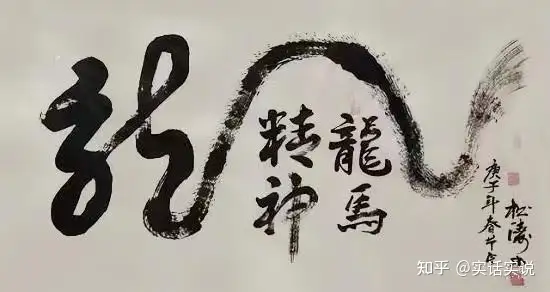 龍
龍馬
精神
庚子年春
松濤
知乎 @实话实说